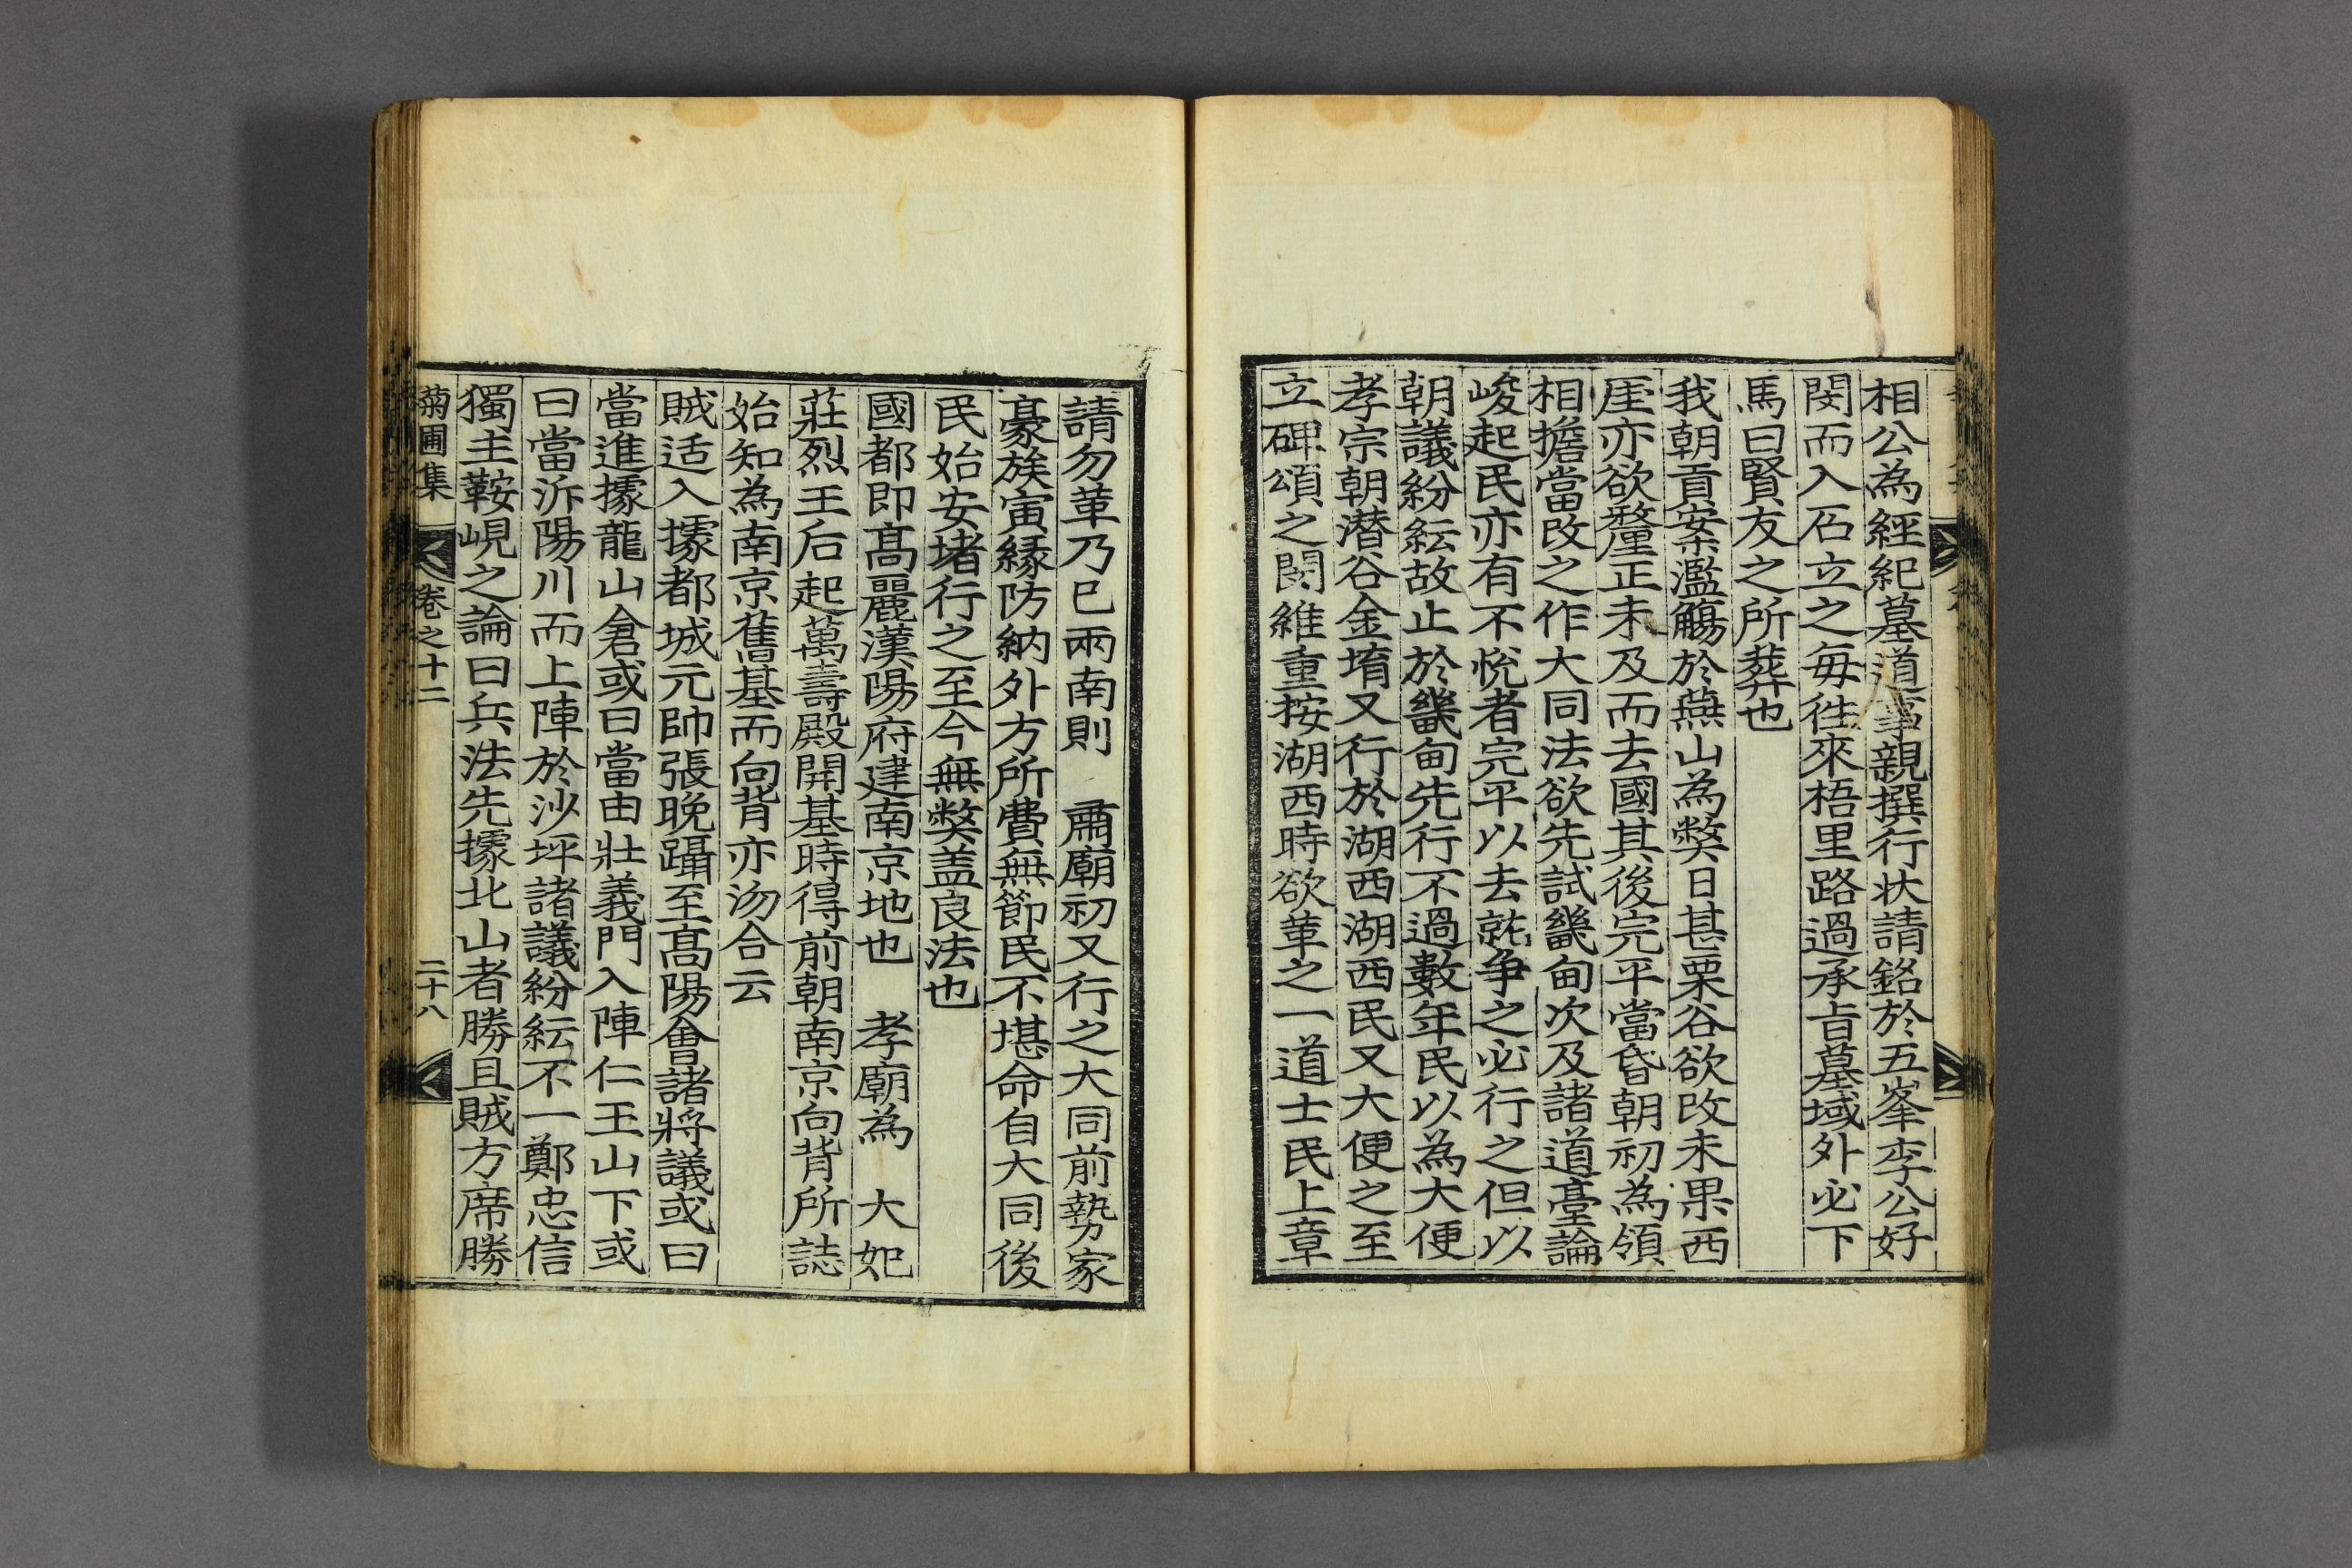 相公為經紀墓道事親撰行状請銘於五峯李公好
閔而入石立之每徃來梧里路過承旨墓域外必下
馬曰賢友之所葬也
我朝貢案濫觴於燕山為弊日甚栗谷欲改未果西
厓亦欲釐正未及而去國其後完平當昏朝初為領
相擔當改之作大同法欲先試畿甸次及諸道臺論
峻起民亦有不悅者完平以去就争之必行之但以
朝議紛紜故止於畿甸先行不過數年民以為大便
孝宗朝潜谷金堉又行於湖西湖西民又大便之至
立碑頌之閔維重按湖西時欲革之一道士民上章
請勿革乃已兩南則 肅廟初又行之大同前勢家
豪族寅緣防納外方所費無節民不堪命自大同後
民始安堵行之至今無弊盖良法也
國都即髙麗漢陽府建南京地也 孝廟為 大妃
莊烈王后起萬壽殿開基時得前朝南京向背所誌
始知為南京舊基而向背亦沕合云
賊适入據都城元帥張晚躡至髙陽會諸將議或曰
當進據龍山倉或曰當由壯義門入陣仁王山下或
曰當泝陽川而上陣於沙坪諸議紛紜不一鄭忠信
獨主鞍峴之論曰兵法先據北山者勝且賊方席勝
菊圃集 卷之十二 二十八